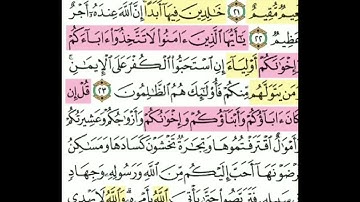 نَعِيمٌ مُّقِيمٌ ٢١ خَٰلِدِينَ فِيهَآ أَبَدًا إِنَّ ٱللَّهَ عِندَهُۥٓ أَجْرٌ
عَظِيمٌ ٢٢ يَٰٓأَيُّهَا ٱلَّذِينَ ءَامَنُوا۟ لَا تَتَّخِذُوٓا۟ ءَابَآءَكُمْ
وَإِخْوَٰنَكُمْ أَوْلِيَآءَ إِنِ ٱسْتَحَبُّوا۟ ٱلْكُفْرَ عَلَى ٱلْإِيمَٰنِ
وَمَن يَتَوَلَّهُم مِّنكُمْ فَأُو۟لَٰٓئِكَ هُمُ ٱلظَّٰلِمُونَ ٢٣ قُلْ إِن
كَانَ ءَابَآؤُكُمْ وَأَبْنَآؤُكُمْ وَإِخْوَٰنُكُمْ وَأَزْوَٰجُكُمْ وَعَشِيرَتُكُمْ
وَأَمْوَٰلٌ ٱقْتَرَفْتُمُوهَا وَتِجَٰرَةٌ تَخْشَوْنَ كَسَادَهَا وَمَسَٰكِنُ
تَرْضَوْنَهَآ أَحَبَّ إِلَيْكُم مِّنَ ٱللَّهِ وَرَسُولِهِۦ وَجِهَادٍ
سَبِيلِهِۦ فَتَرَبَّصُوا۟ حَتَّىٰ يَأْتِىَ ٱللَّهُ بِأَمْرِهِۦ وَٱللَّهُ لَا يَهْدِى